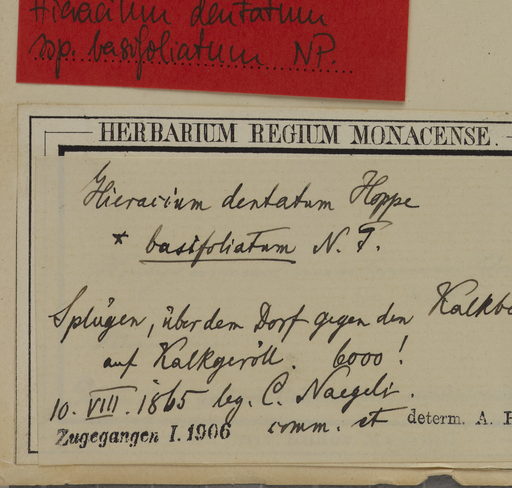 Hieracium dentatum
ssp. basifoliatum NP.
HERBARIUM REGIUM MONACENSE.
Hieracium dentatum Hoppe
* basifoliatum N. P.
Splügen, über dem Dorf gegen den
auf Kalkgeröll. 6000!
10. VIII. 1865 leg. C. Naegeli.
Zugegangen I. 1906 comm. et determ. A.